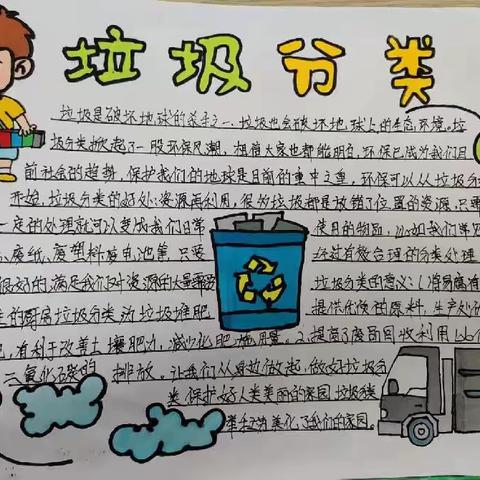 垃圾分类
垃圾是破坏地球的杀手之一、垃圾也会破坏地球上的生态环境。垃
圾分类掀起了一股环保风潮，相信大家也都能明白，环保已成为我们目
前社会的趋势，保护我们的地球是目前的重中之重，环保可以从垃圾分
开始，垃圾分类的好处：资源再利用，很多垃圾都是放错了位置的资源，只要
定的处理就可以变成我们日常使用的物品，比如我们常见
、废纸、废塑料废电池等，只要经过有极合理的分类处理
很好的满足我们对资源的大量需求垃圾分类的意义：1、将易腐有
的厨房垃圾分类为垃圾堆肥提供优质的原料，生产处
，有利于改善土壤肥力，减少化肥施用量。2、提高了废品回收利用
二氧化碳的排放。让我们从身边做起，做好垃圾分
类，保护好人类美丽的家园，垃圾
美化了我们的家园。